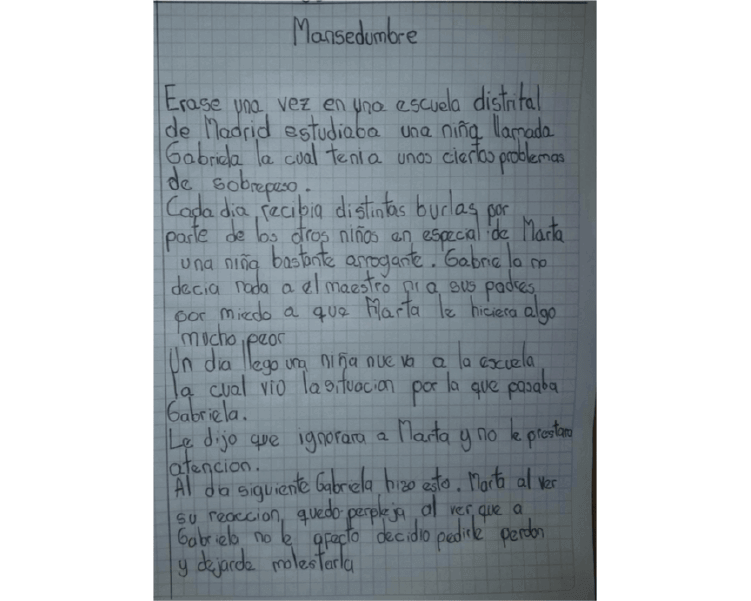 Mansedumbre
Erase una vez en una escuela distrital
de Madrid estudiaba una niña llamada
Gabriela la cual tenia unos ciertos problemas
de sobrepeso.
Cada dia recibia distintas burlas por
parte de los otros niños en especial de Marta
una niña bastante arrogante. Gabriela no
decia nada a el maestro ni a sus padres
por miedo a que Marta le hiciera algo
mucho peor
Un dia llego una niña nueva a la escuela
la cual vio la situacion por la que pasaba
Gabriela.
Le dijo que ignorara a Marta y no le prestara
atencion.
Al dia siguiente Gabriela hizo esto. Marta al ver
su reaccion, quedo perpleja al ver que a
Gabriela no le afecto decidio pedirle perdon
y dejarde molestarla